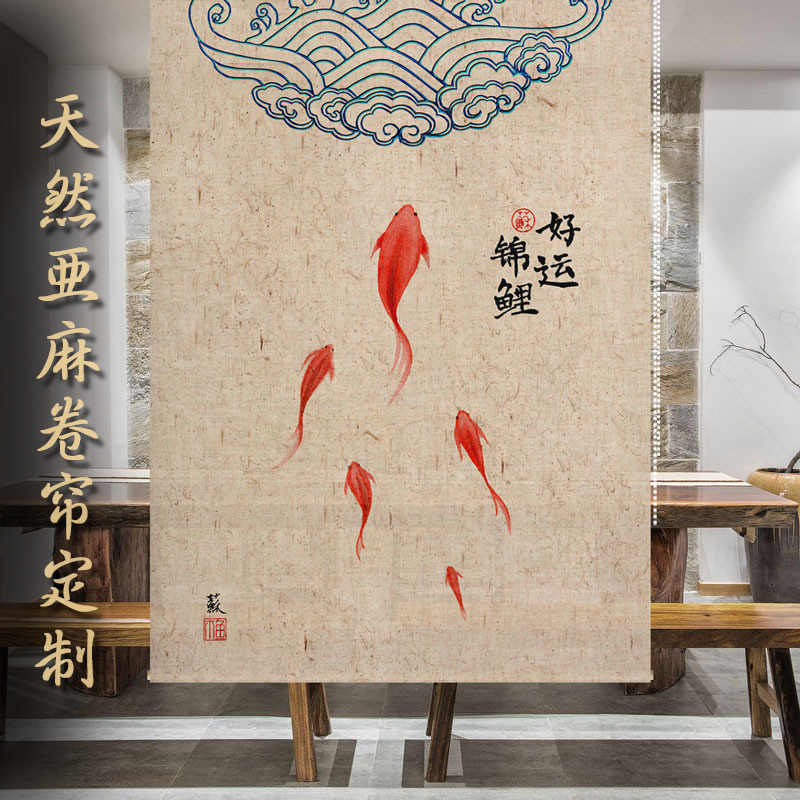 天然亜麻卷帘定制
好运
锦鲤